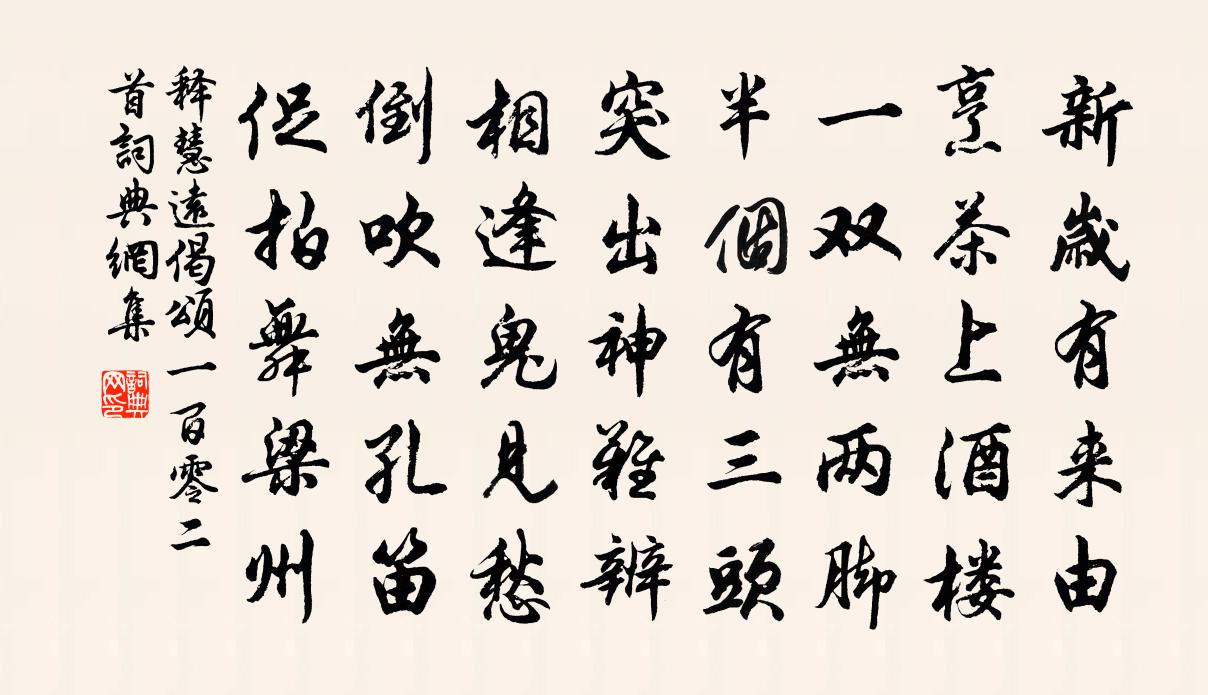 新歲有来由
烹茶上酒楼
一双無两脚
半個有三頭
突出神難辨
相逢鬼見愁
倒吹無孔笛
促拍舞梁州
释慧遠偈頌一百零二
首詞典網集
詞典网印